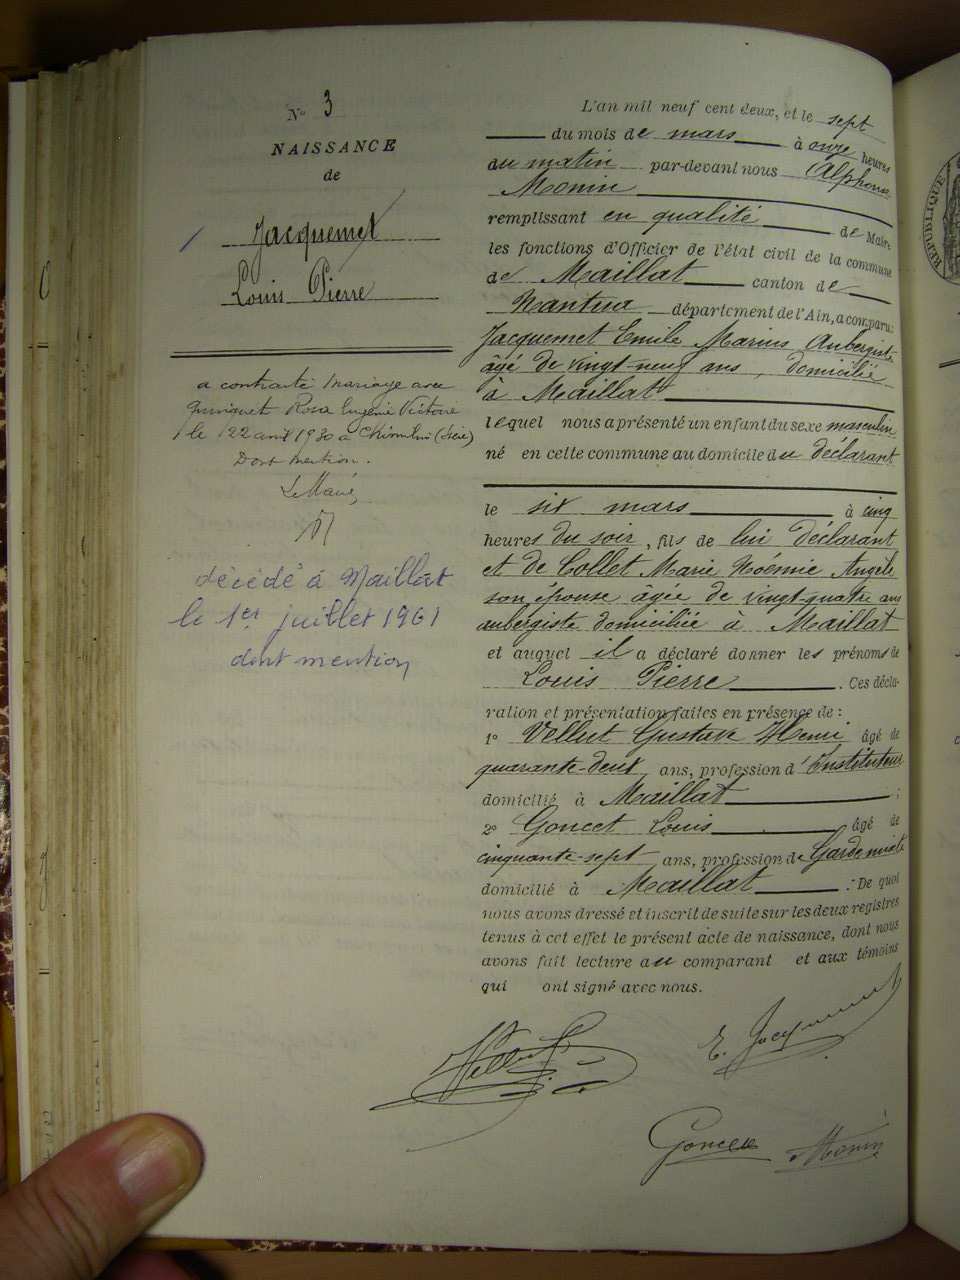 N° 3
NAISSANCE
de
Jacquemet
Louis Pierre
a contracté mariage avec
Rosa Eugénie Victoire
le 22 avril 1930 à Chimilin (Isère)
Dont mention.
Le Maire,
décédé à Maillat
le 1er juillet 1961
dont mention
L'an mil neuf cent deux, et le sept
du mois de mars à onze heures
du matin par-devant nous Alphonse
Monin
remplissant en qualité de Maire
les fonctions d'Officier de l'état civil de la commune
de Maillat canton de
Nantua département de l'Ain, a comparu:
Jacquemet Emile Marius Aubergiste
âgé de vingt-neuf ans, domicilié
à Maillat
lequel nous a présenté un enfant du sexe masculin
né en cette commune au domicile du déclarant
le six mars à cinq
heures du soir, fils de lui déclarant
et de Collet Marie Noémie Angèle
son épouse âgée de vingt-quatre ans
aubergiste domiciliée à Maillat
et auquel il a déclaré donner les prénoms de
Louis Pierre. Ces décla-
ration et présentation faites en présence de:
1° Vellut Gustave Henri âgé de
quarante-deux ans, profession d'Instituteur
domicilié à Maillat;
2° Goncet Louis âgé de
cinquante-sept ans, profession de
domicilié à Maillat: De quoi
nous avons dressé et inscrit de suite sur les deux registres
tenus à cet effet le présent acte de naissance, dont nous
avons fait lecture au comparant et aux témoins
qui ont signé avec nous.
Vellut
E. Jacquemet
Goncet
Monin
RÉPUBLIQUE